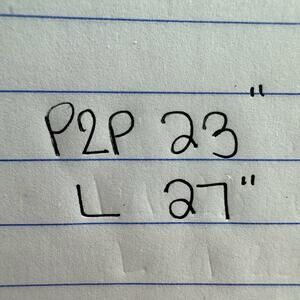 P2P 23"
L 27"